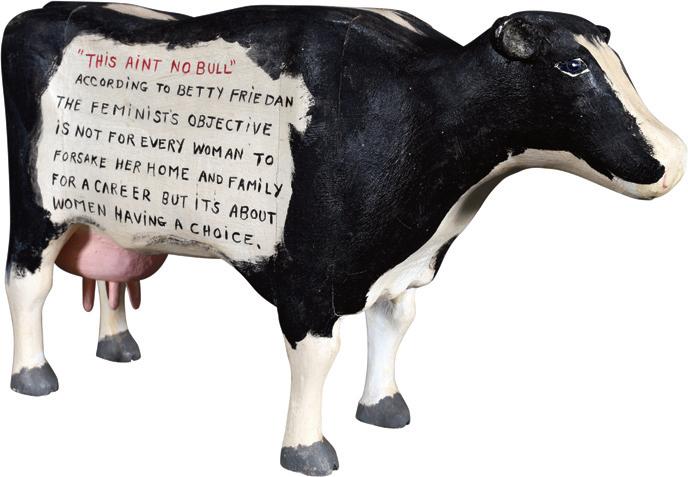 "THIS AINT NO BULL"
ACCORDING TO BETTY FRIEDAN
THE FEMINIST'S OBJECTIVE
IS NOT FOR EVERY WOMAN TO
FORSAKE HER HOME AND FAMILY
FOR A CAREER BUT IT'S ABOUT
WOMEN HAVING A CHOICE.